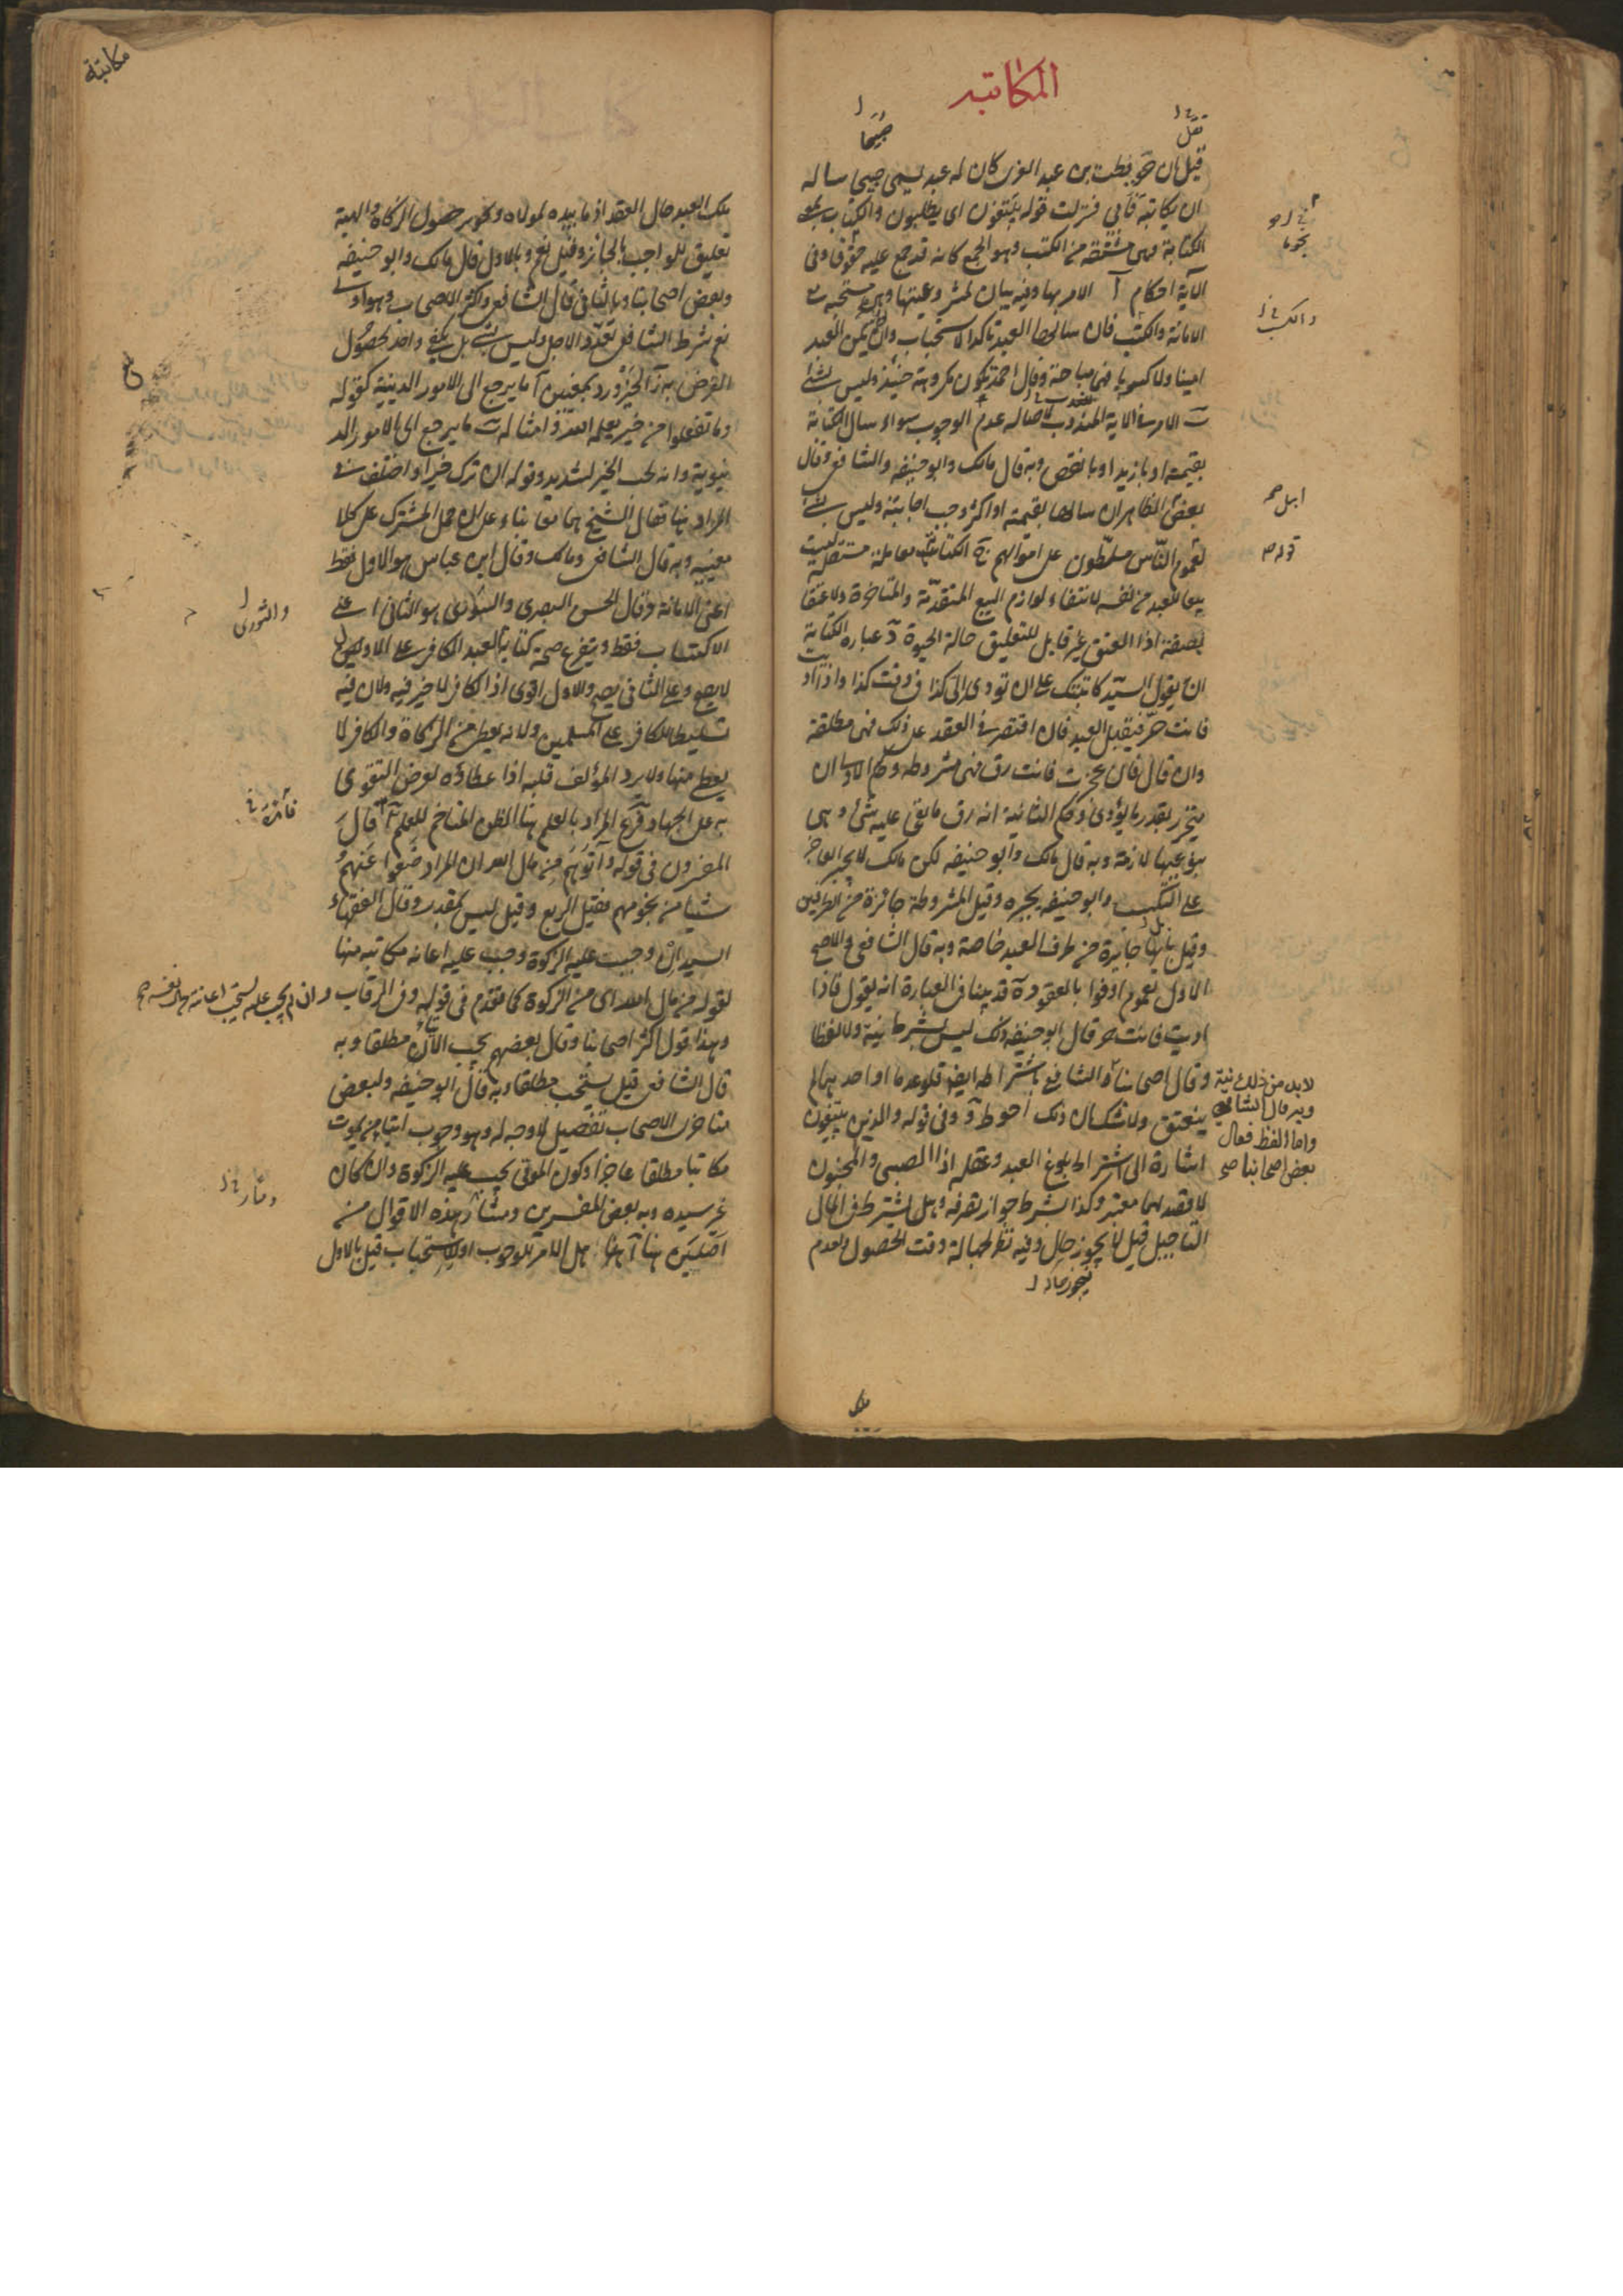 المكاتبه
قيل ان حويطب بن عبد العزى كان له عبد يسمى صبيحا ساله
ان يكاتبه فابى فنزلت قوله يبتغون اى يطلبون والكتاب هو
الكتابة وهى مشتقه من الكتب وهو الجمع كانه قد جمع عليه حقوقا وفى
الآية احكام آ الامر بها وفيه بيان لمشروعيتها وهى مستحبة مع
الامانة والكسب فان سالها العبد تاكد الاستحباب وان لم يكن العبد
امينا ولا كسوبا فهى مباحة وقال احمد تكون مكروهة حينئذ وليس بشئ
ب الامر فى الاية للندب لاصالة عدم الوجوب سواء سال الكتابة
بقيمته او بازيد او بانقص وبه قال مالك وابو حنيفه والشافعى وقال
بعض الظاهر ان سالها بقيمته او اكثر وجب اجابته وليس بشئ
لعموم الناس مسلطون على اموالهم ج الكتابة معاملة مستقلة ليست
بيعا للعبد من نفسه لانتفاء لوازم البيع المتقدمة والمتاخرة ولا عتقا
بصفة اذا العتق غير قابل للتعليق حالة الحيوة د عبارة الكتابة
ان يقول السيد كاتبتك على ان تودى الى كذا فى وقت كذا واذا اديت
فانت حر فيقبل العبد فان اقتصر فى العقد على ذلك فهى مطلقة
وان قال فان عجزت فانت رق فهى مشروطه وحكم الاولى ان
يتحرر بقدر ما يؤدى وحكم الثانية انه رق ما بقى عليه شئ وهى
بنوعيها لازمة وبه قال مالك وابو حنيفه لكن مالك لا يجبر العاجز
على التكسب وابو حنيفه يجبره وقيل المشروطة جائزة من الطرفين
وقيل بانها جايزة من طرف العبد خاصة وبه قال الشافعى والاصح
الاول لعموم اوفوا بالعقود ه قد بينا فى العبارة انه يقول فاذا
اديت فانت حر قال ابو حنيفه ذلك ليس بشرط نية ولا لفظا
وقال اصحابنا والشافعى باشتراطه ايضا فلو عدما او احدهما لم
ينعتق ولا شك ان ذلك احوط و وفى قوله والذين يبتغون
اشارة الى اشتراط بلوغ العبد وعقله اذا الصبى والمجنون
لا قصد لهما معتبر وكذا بشرط جواز تصرفه وهل يشترط فى المال
التاجيل قيل لا يجوز حال وفيه نظر لجهالة وقت الحصول ولعدم
لابد من ذلك نية
وبه قال الشافعى
واما اللفظ فقال
بعض اصحابنا صح
مكاتبة
ملك العبد حال العقد اذ ما بيده لمولاه وتجويز حصول الزكاة والهبة
تعليق للواجب بالجائز وقيل نعم وبالاول قال مالك وابو حنيفه
وبعض اصحابنا وبالثانى قال الشافعى واكثر الاصحاب وهو اولى
نعم شرط الشافعى تعدد الاجل وليس بشئ بل يكفى واحد لحصول
الغرض به ز الخير ورد بمعنيين آ ما يرجع الى الامور الدينية كقوله
وما تفعلوا من خير يعلمه الله وامثاله ب ما يرجع الى الامور الد
نيوية وانه لحب الخير لشديد وقوله ان ترك خيرا واختلف فى
المراد هنا فقال الشيخ هما معا بناء على ان حمل المشترك على كلا
معنييه وبه قال الشافعى ومالك وقال ابن عباس هو الاول فقط
اعنى الامانة وقال الحسن البصرى والثورى هو الثانى اعنى
الاكتساب فقط ويتفرع صحة كتابة العبد الكافر على الاولين
لا يصح وعلى الثانى يصح والاول اقوى اذ الكافر لا خير فيه ولان فيه
تسليطا للكافر على المسلمين ولانه يعطى من الزكاة والكافر لا
يعطى منها ولا يرد المؤلف قلبه اذا عطاؤه لغرض التقوى
به على الجهاد فرع المراد بالعلم هنا الظن المتاخم للعلم قال
المفسرون فى قوله وآتوهم من مال الله ان المراد ضعوا عنهم
شيئا من نجومهم فقيل الربع وقيل ليس بمقدر وقال الفقهاء
السيد ان وجبت عليه الزكوة وجب عليه اعانة مكاتبه منها
لقوله من مال الله اى من الزكوة كما تقدم فى قوله وفى الرقاب وان لم يجب عليه يستحب اعانته من نفسه صح
وهذا قول اكثر اصحابنا وقال بعضهم يجب الايتاء مطلقا وبه
قال الشافعى قيل يستحب مطلقا وبه قال ابو حنيفه ولبعض
متاخرى الاصحاب تفصيل لا وجه له وهو وجوب ايتاء من يموت
مكاتبا مطلقا عاجزا وكون الموتى يجب عليه الزكوة وان كان
غير سيده وبه بعض المفسرين ومنشأ هذه الاقوال من
اصلين هنا آ هل الامر للوجوب او للاستحباب قيل بالاول
والثورى